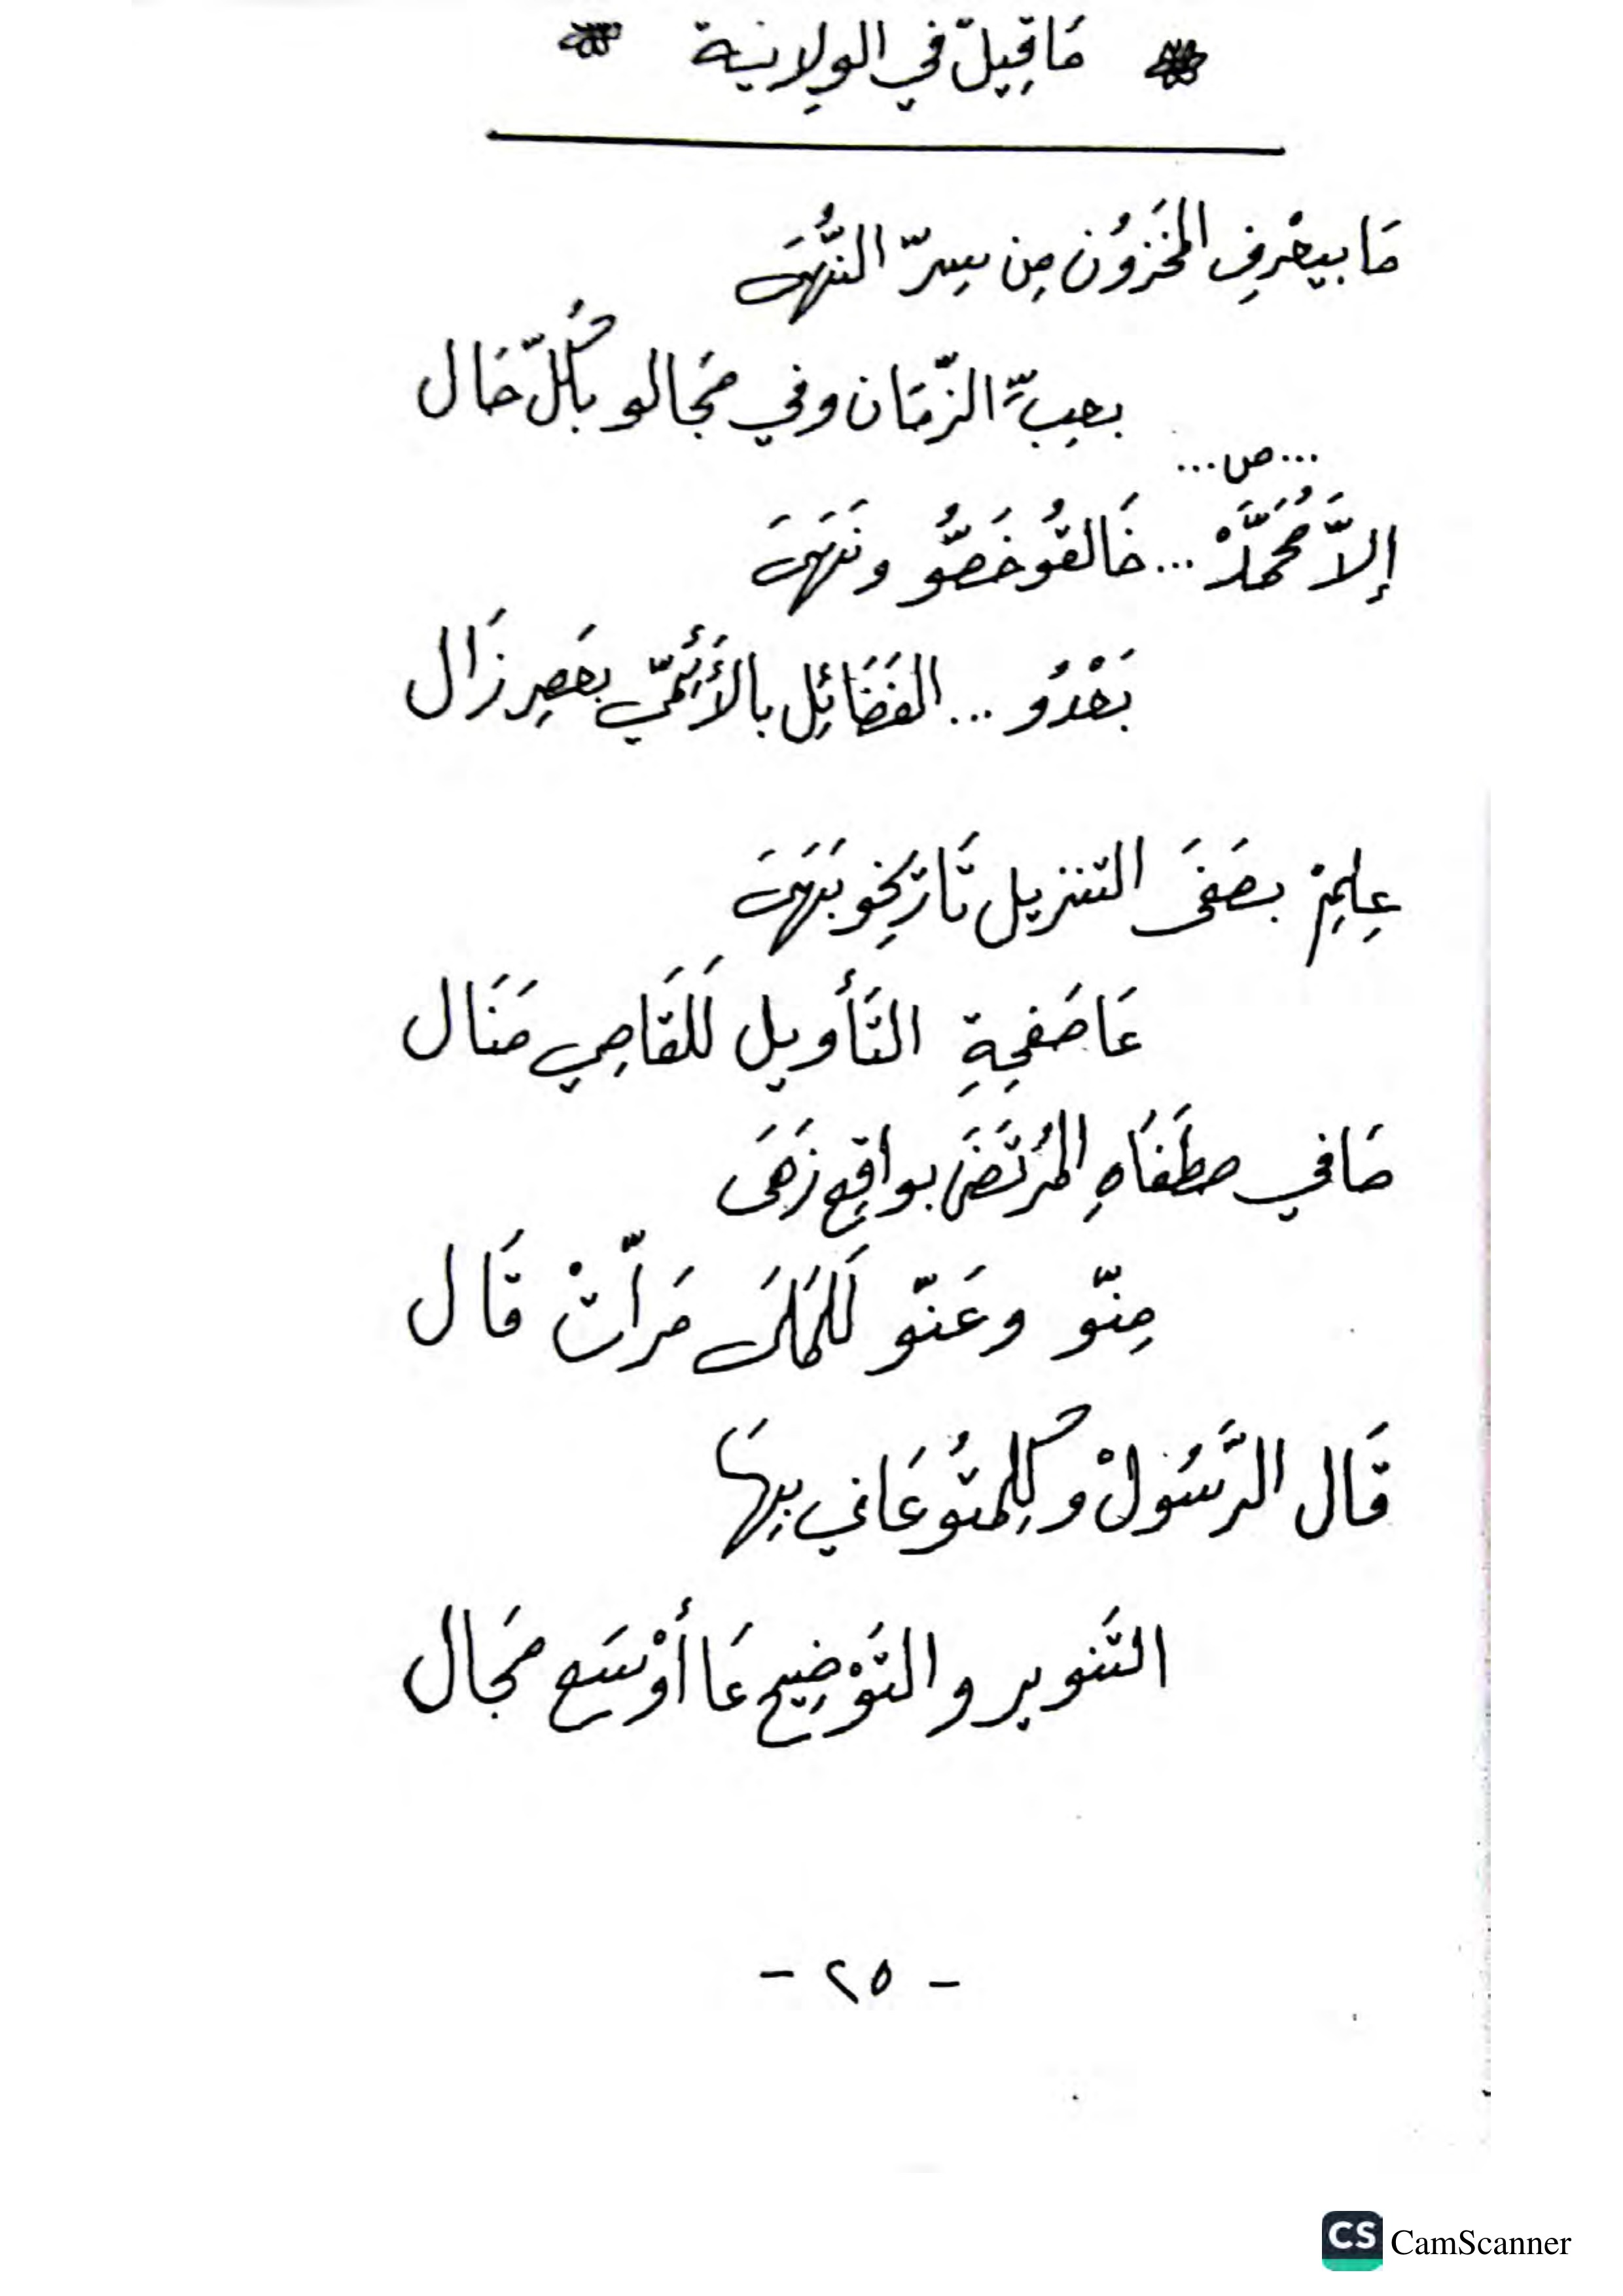 مَا قِيلَ في الوِلايَية
مَا بيعْرفِ المَخزوُن مِن سِرّ النُّهَىَ
بعِبِّ الزّمَان وفي مَجَالو بكُلّ حَال
...ص...
إلاَّ مُحُمَّدْ... خَالقوُ خَصُّو ونَهَىَ
بَعْدُو ... الفَضَائِل بالأَئِمّي بعَصِر زَال
عِلِيمِْ بصَفىَ التنزيل تَاريَخِو بَهَىَ
عَا صَفحِةِ التَأويل لَلقَاصِي مَنَال
صَافي صطَفَاهِ المُرْتَضَىَ بواقِع زَهَىَ
مِنّو وعَنّو لَلمَلَكَ مَرّاتْ قَال
قَال الرَّسُولْ وكِلِمتوُ عَاني بِيِهَا
التَنوير والتَوْضِيح عَا أوْسَع مَجَال
- ٢٥ -
CS CamScanner